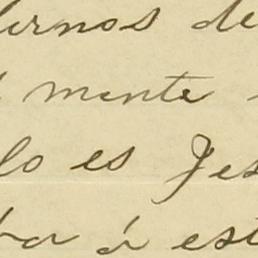 ernos de
mente
lo es Jes
ba á est